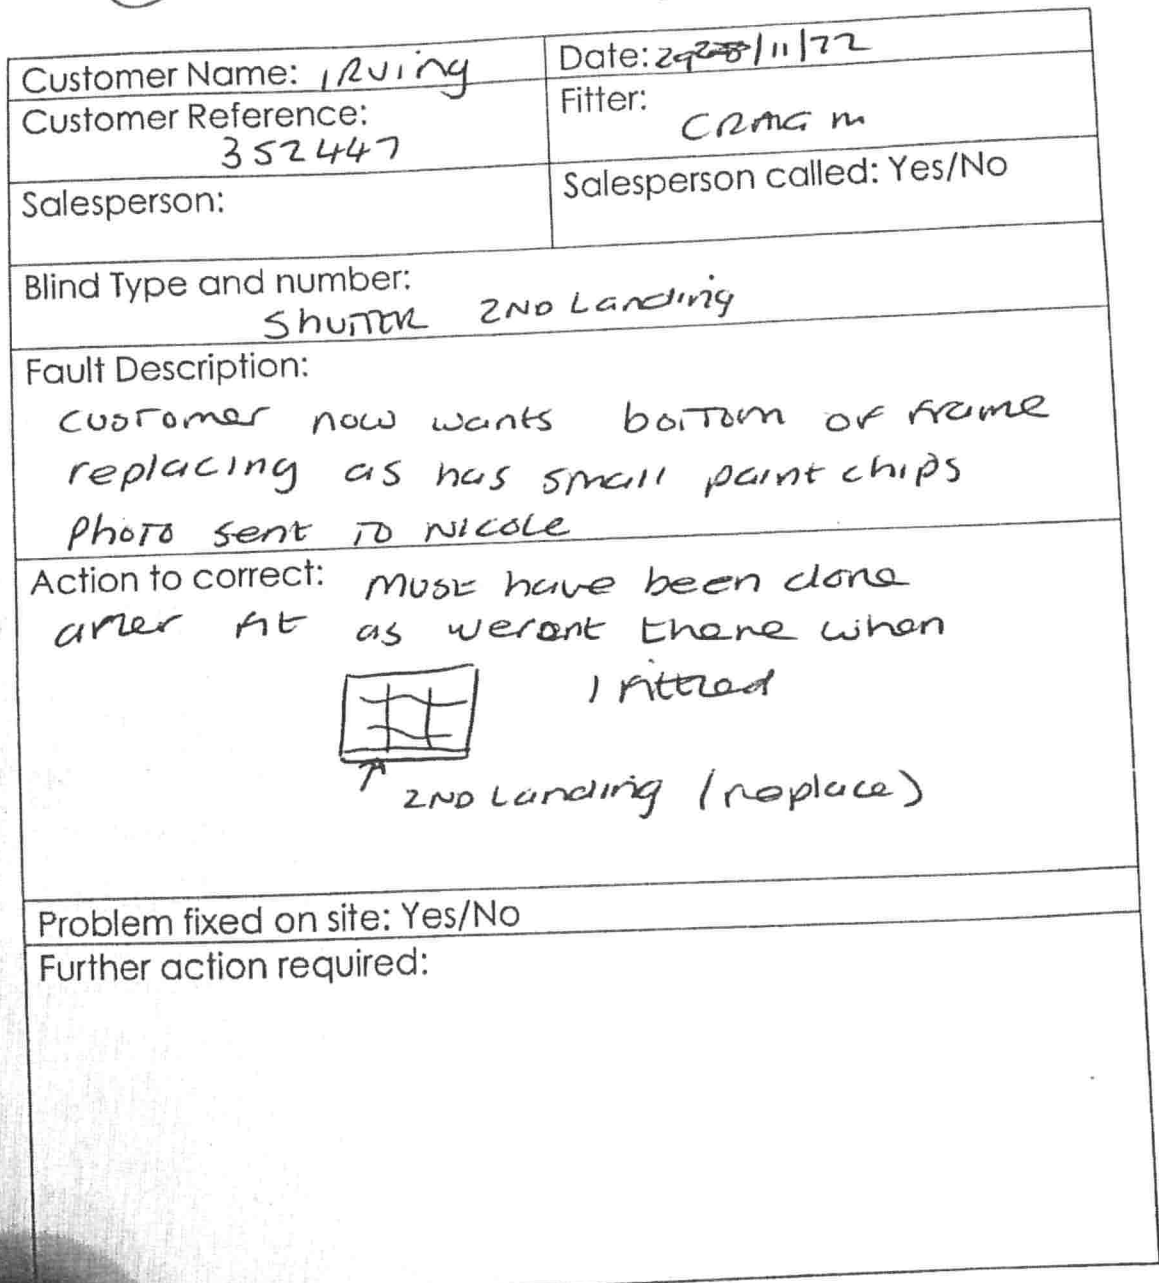 Customer Name: IRVing
Date: 29/11/22
Customer Reference:
352447
Fitter:
CRAIG M
Salesperson:
Salesperson called: Yes/No
Blind Type and number:
ShuTTER 2ND Landing
Fault Description:
customer now wants boTTom of frame
replacing as has small paint chips
PhoTo sent To NICOLE
Action to correct: Must have been done
after fit as werent there when
I fitted
2ND Landing (replace)
Problem fixed on site: Yes/No
Further action required: